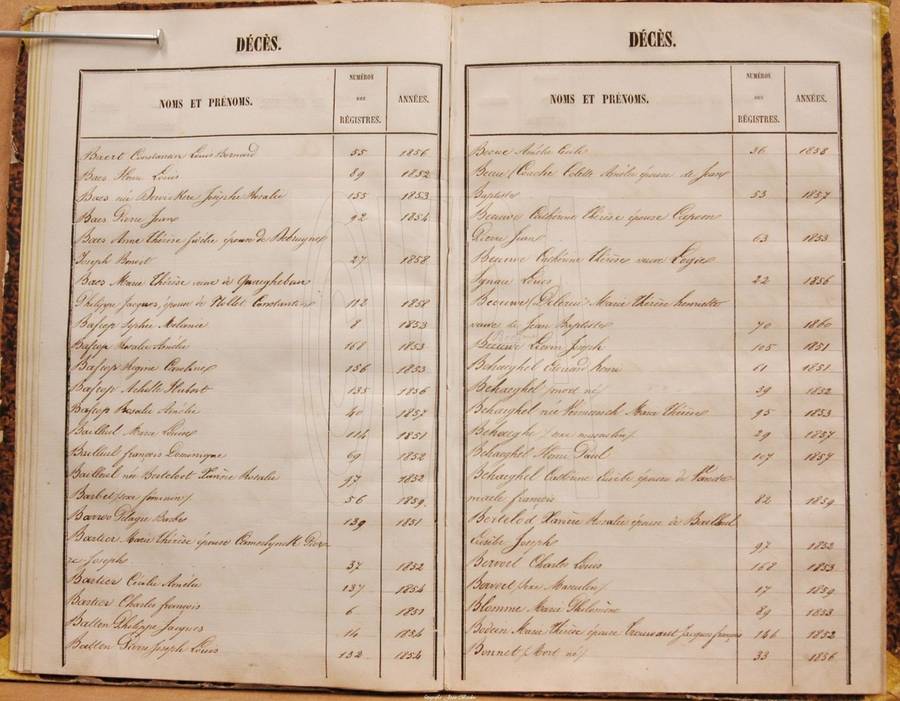 DÉCÈS.
NOMS ET PRÉNOMS.
NUMÉROS
DES
RÉGISTRES.
ANNÉES.
Baert Constantin Louis Bernard 55 1856
Baes Henri Louis 89 1852
Baes née Joséphe Rosalie 155 1853
Baes Pierre Jean 92 1854
Baes Anne thérèse épouse de
Joseph Benoit 27 1858
Baes Marie Thérèse veuve de
Philippe Jacques, épouse de Constantin 112 1858
Bafcop Sophie Mélanie 8 1853
Bafcop Rosalie Amélie 168 1853
Bafcop Hygine Caroline 156 1853
Bafcop Achille Hubert 135 1856
Bafcop Rosalie Amélie 40 1857
Bailleul Marie Louise 114 1851
Bailleul françois Dominique 69 1852
Bailleul née Berteloot Xavière Rosalie 97 1852
Barbez (sexe féminin) 56 1859
Barroo Pélagie Barbe 139 1851
Bartier Marie Thérèse épouse Pier
re Joseph 37 1852
Bartier Cécile Amélie 137 1854
Bartier Charles françois 6 1851
Batten Philippe Jacques 14 1854
Batten Pierre Joseph Louis 132 1854
DÉCÈS.
NOMS ET PRÉNOMS.
NUMÉROS
DES
RÉGISTRES.
ANNÉES.
Amélie 36 1858
épouse de Jean
Baptiste 53 1857
Beauve Catherine thérèse épouse
Pierre Jean 63 1853
Beauve Catherine Thérèse veuve
Ignace Louis 22 1856
Marie Thérèse henriette
veuve de Jean Baptiste 70 1860
Joseph 105 1851
Behaeghel Edouard henri 61 1851
Behaeghel (mort né) 39 1852
Behaeghel née Marie thérèse 95 1853
Behaeghel (sexe masculin) 29 1857
Behaeghel Henri Paul 107 1857
Behaeghel Catherine épouse de Vanda-
maele françois 82 1859
Bertelod Xavière Rosalie épouse de Bailleul
Joseph 97 1852
Bervoet Charles Louis 168 1853
Bervoet (sexe Masculin) 17 1859
Blomme Marie Philomène 89 1853
Marie Thérèse épouse Jacques françois 146 1852
Bonnet (Mort né) 33 1856